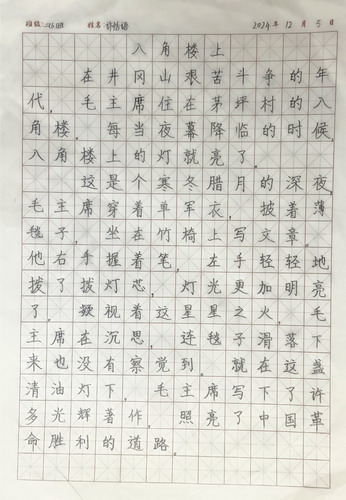 班级: 姓名 2024年12月5日
八角楼上
在井冈山艰苦斗争的年
代,毛主席住在茅坪村的八
角楼。每当夜幕降临的时候,
八角楼上的灯就亮了。
这是个寒冬腊月的深夜,
毛主席穿着单军衣,披着薄
毯子,坐在竹椅上写文章。
他右手握着笔,左手轻轻地
拨了拨灯芯,灯光更加明亮
了。凝视着这星星之火,毛
主席在沉思,连毯子滑落下
来也没有察觉到。就在这盏
清油灯下,毛主席写下了许
多光辉著作,照亮了中国革
命胜利的道路。